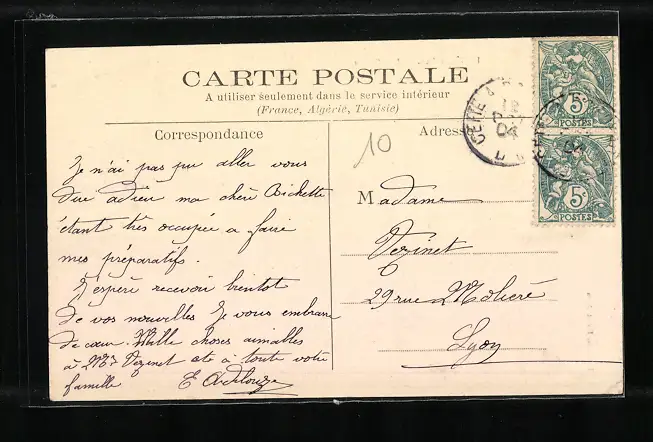 CARTE POSTALE
A utiliser seulement dans le service intérieur
(France, Algérie, Tunisie)
Correspondance
Adresse
10
Je n'ai pas pu aller vous
dire adieu ma chère Bichette
étant très occupée a faire
mes préparatifs.
J'espère recevoir bientot
de vos nouvelles Je vous embrasse
de cœur. Mille choses aimables
à Mr Vezinet et a toute votre
famille E
Madame
Vezinet
29 rue Molière
Lyon
CETTE
04
5c
POSTES
04
5c
POSTES